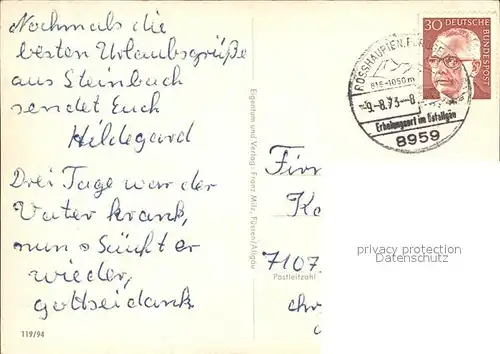 Nochmals die
besten Urlaubsgrüße
aus Steinbach
sendet Euch
Hildegard
Drei Tage war der
Vater krank,
nun säuft er
wieder,
gottseidank.
119/94
Eigentum und Verlag: Franz Milz, Füssen/Allgäu
30 DEUTSCHE
BUNDESPOST
ROSSHAUPTEN
816-1050 m
-9.-8.73-8
Erholungsort im Ostallgäu
8959
Firm
7107
Postleitzahl
privacy protection
Datenschutz